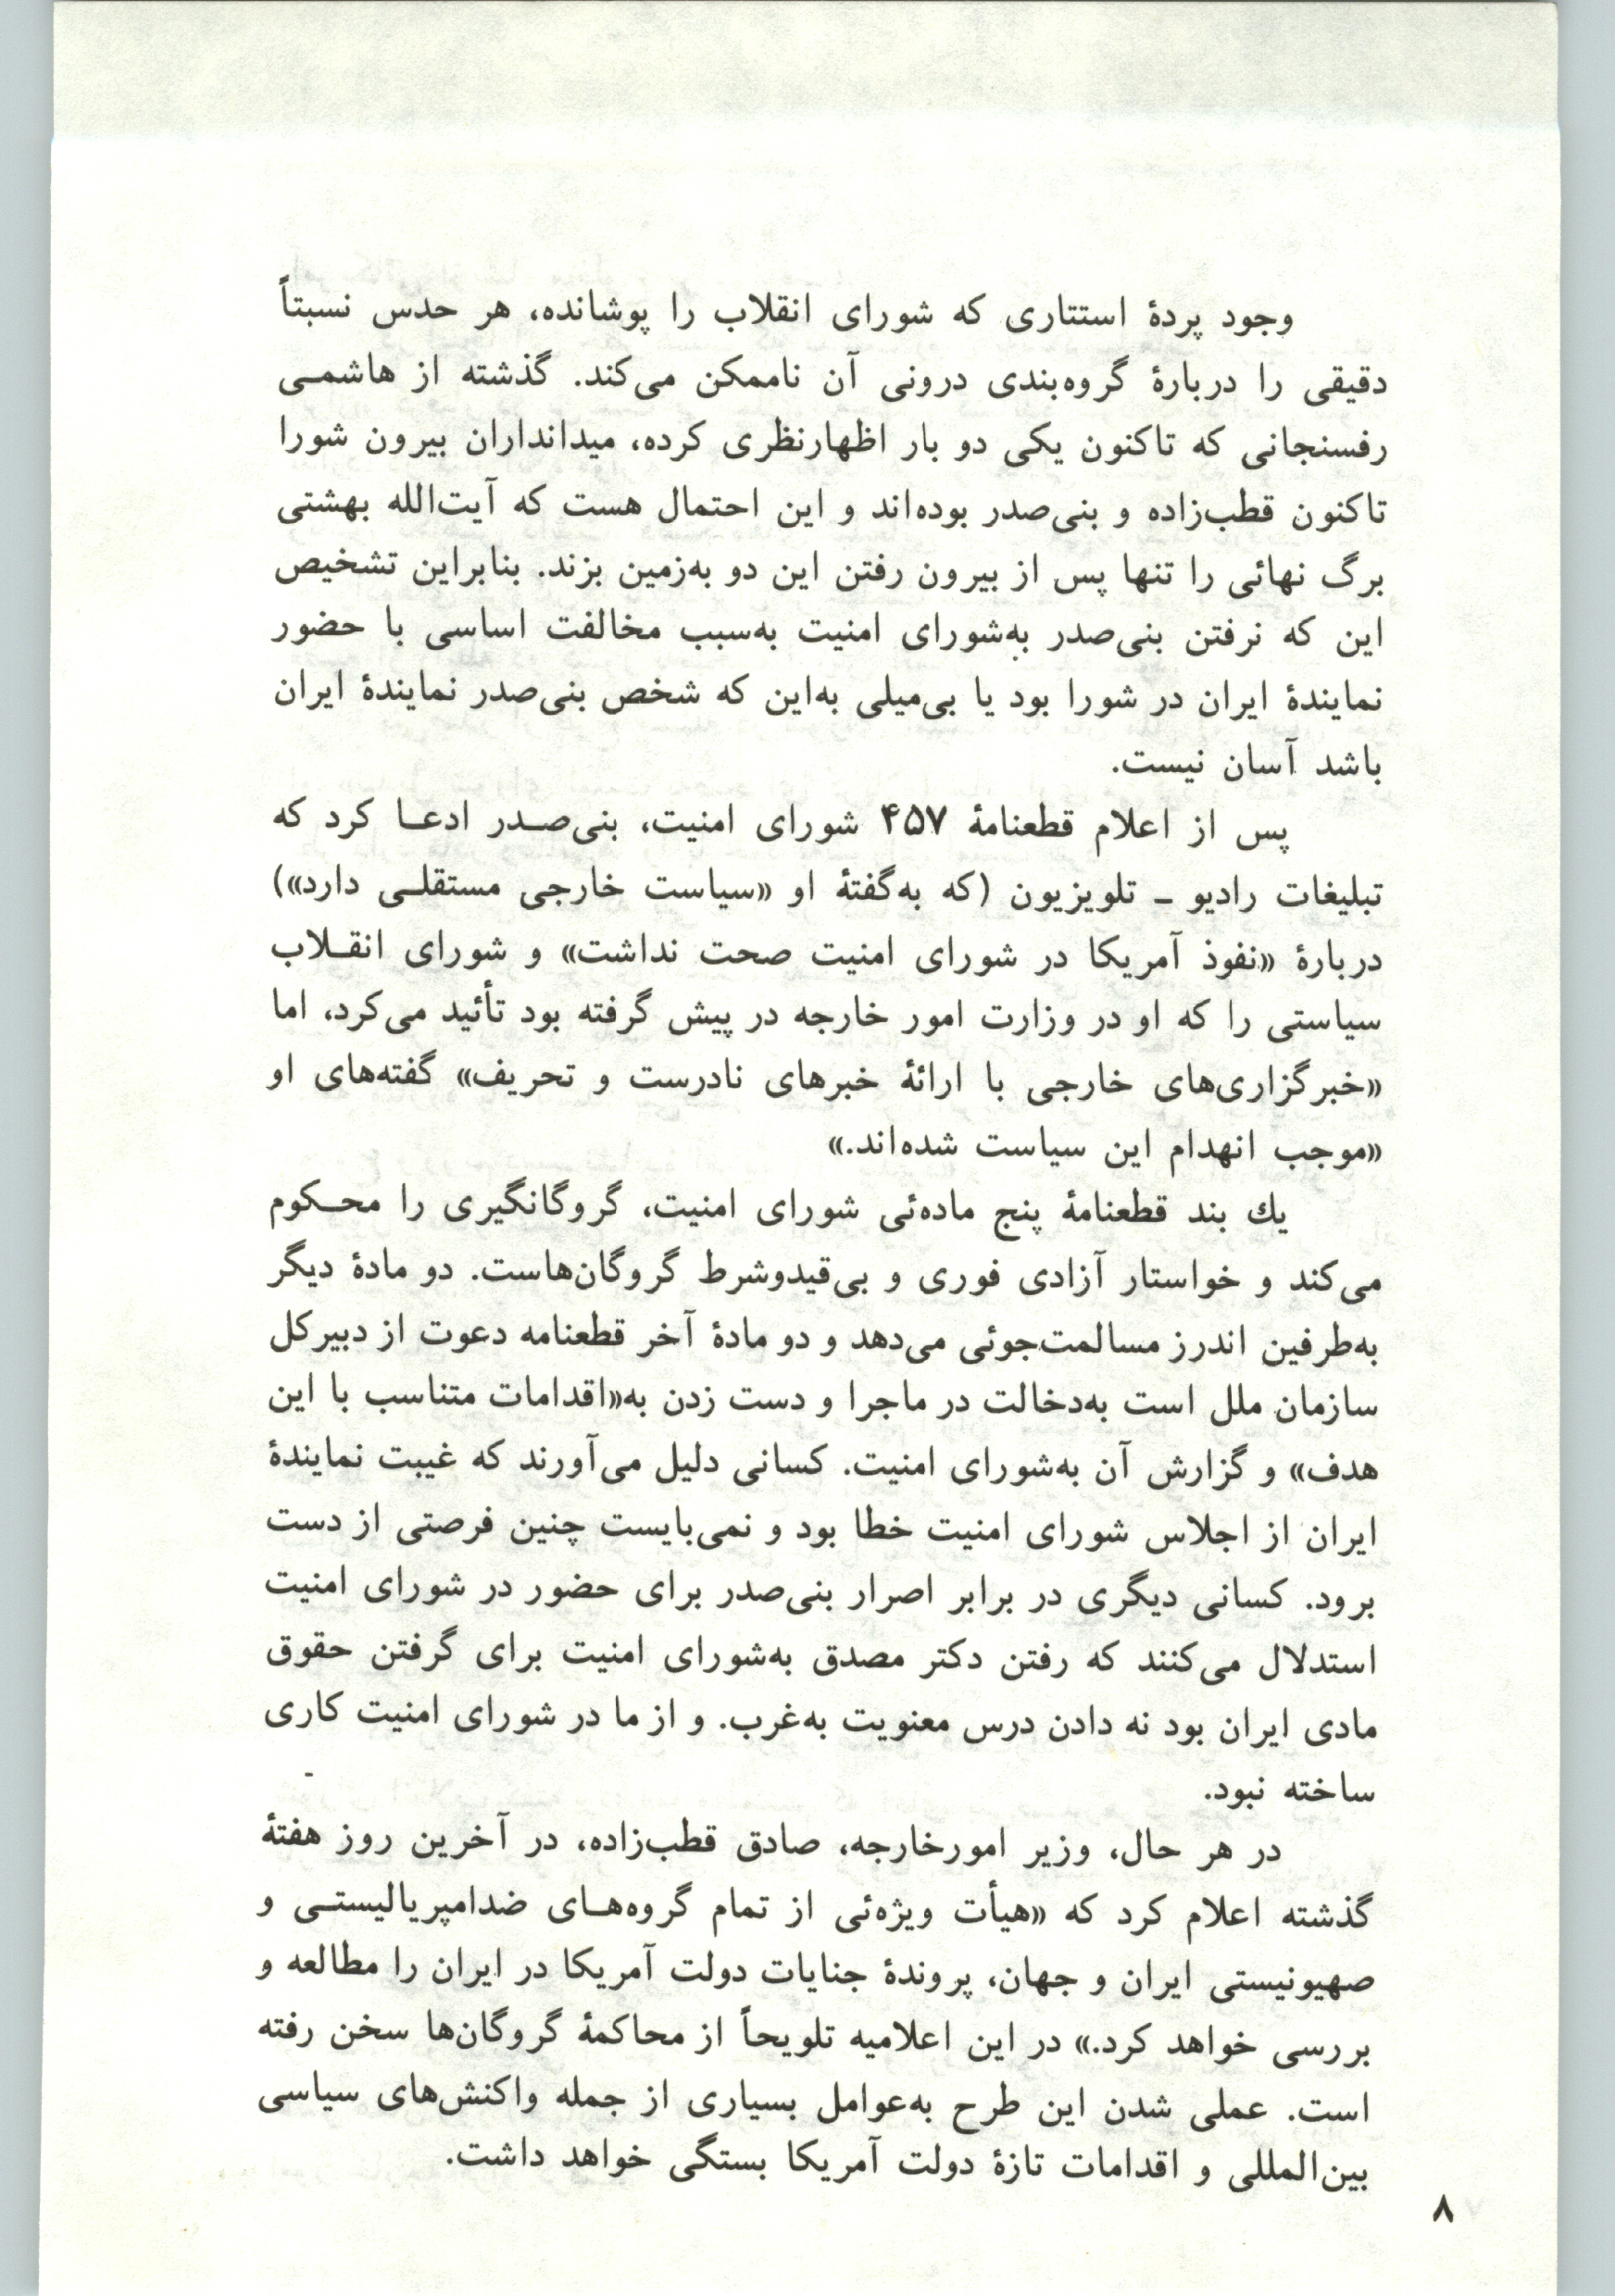 وجود پردهٔ استتاری که شورای انقلاب را پوشانده، هر حدس نسبتاً
دقیقی را دربارهٔ گروه‌بندی درونی آن ناممکن می‌کند. گذشته از هاشمی
رفسنجانی که تاکنون یکی دو بار اظهارنظری کرده، میدانداران بیرون شورا
تاکنون قطب‌زاده و بنی‌صدر بوده‌اند و این احتمال هست که آیت‌الله بهشتی
برگ نهائی را تنها پس از بیرون رفتن این دو به‌زمین بزند. بنابراین تشخیص
این که نرفتن بنی‌صدر به‌شورای امنیت به‌سبب مخالفت اساسی با حضور
نمایندهٔ ایران در شورا بود یا بی‌میلی به‌این که شخص بنی‌صدر نمایندهٔ ایران
باشد آسان نیست.
پس از اعلام قطعنامهٔ ۴۵۷ شورای امنیت، بنی‌صدر ادعا کرد که
تبلیغات رادیو ـ تلویزیون (که به‌گفتهٔ او «سیاست خارجی مستقلی دارد»)
دربارهٔ «نفوذ آمریکا در شورای امنیت صحت نداشت» و شورای انقلاب
سیاستی را که او در وزارت امور خارجه در پیش گرفته بود تأئید می‌کرد، اما
«خبرگزاری‌های خارجی با ارائهٔ خبرهای نادرست و تحریف» گفته‌های او
«موجب انهدام این سیاست شده‌اند.»
یك بند قطعنامهٔ پنج ماده‌ئی شورای امنیت، گروگانگیری را محکوم
می‌کند و خواستار آزادی فوری و بی‌قیدوشرط گروگان‌هاست. دو مادهٔ دیگر
به‌طرفین اندرز مسالمت‌جوئی می‌دهد و دو مادهٔ آخر قطعنامه دعوت از دبیرکل
سازمان ملل است به‌دخالت در ماجرا و دست زدن به«اقدامات متناسب با این
هدف» و گزارش آن به‌شورای امنیت. کسانی دلیل می‌آورند که غیبت نمایندهٔ
ایران از اجلاس شورای امنیت خطا بود و نمی‌بایست چنین فرصتی از دست
برود. کسانی دیگری در برابر اصرار بنی‌صدر برای حضور در شورای امنیت
استدلال می‌کنند که رفتن دکتر مصدق به‌شورای امنیت برای گرفتن حقوق
مادی ایران بود نه دادن درس معنویت به‌غرب. و از ما در شورای امنیت کاری
ساخته نبود.
در هر حال، وزیر امورخارجه، صادق قطب‌زاده، در آخرین روز هفتهٔ
گذشته اعلام کرد که «هیأت ویژه‌ئی از تمام گروه‌های ضدامپریالیستی و
صهیونیستی ایران و جهان، پروندهٔ جنایات دولت آمریکا در ایران را مطالعه و
بررسی خواهد کرد.» در این اعلامیه تلویحاً از محاکمهٔ گروگان‌ها سخن رفته
است. عملی شدن این طرح به‌عوامل بسیاری از جمله واکنش‌های سیاسی
بین‌المللی و اقدامات تازهٔ دولت آمریکا بستگی خواهد داشت.
۸